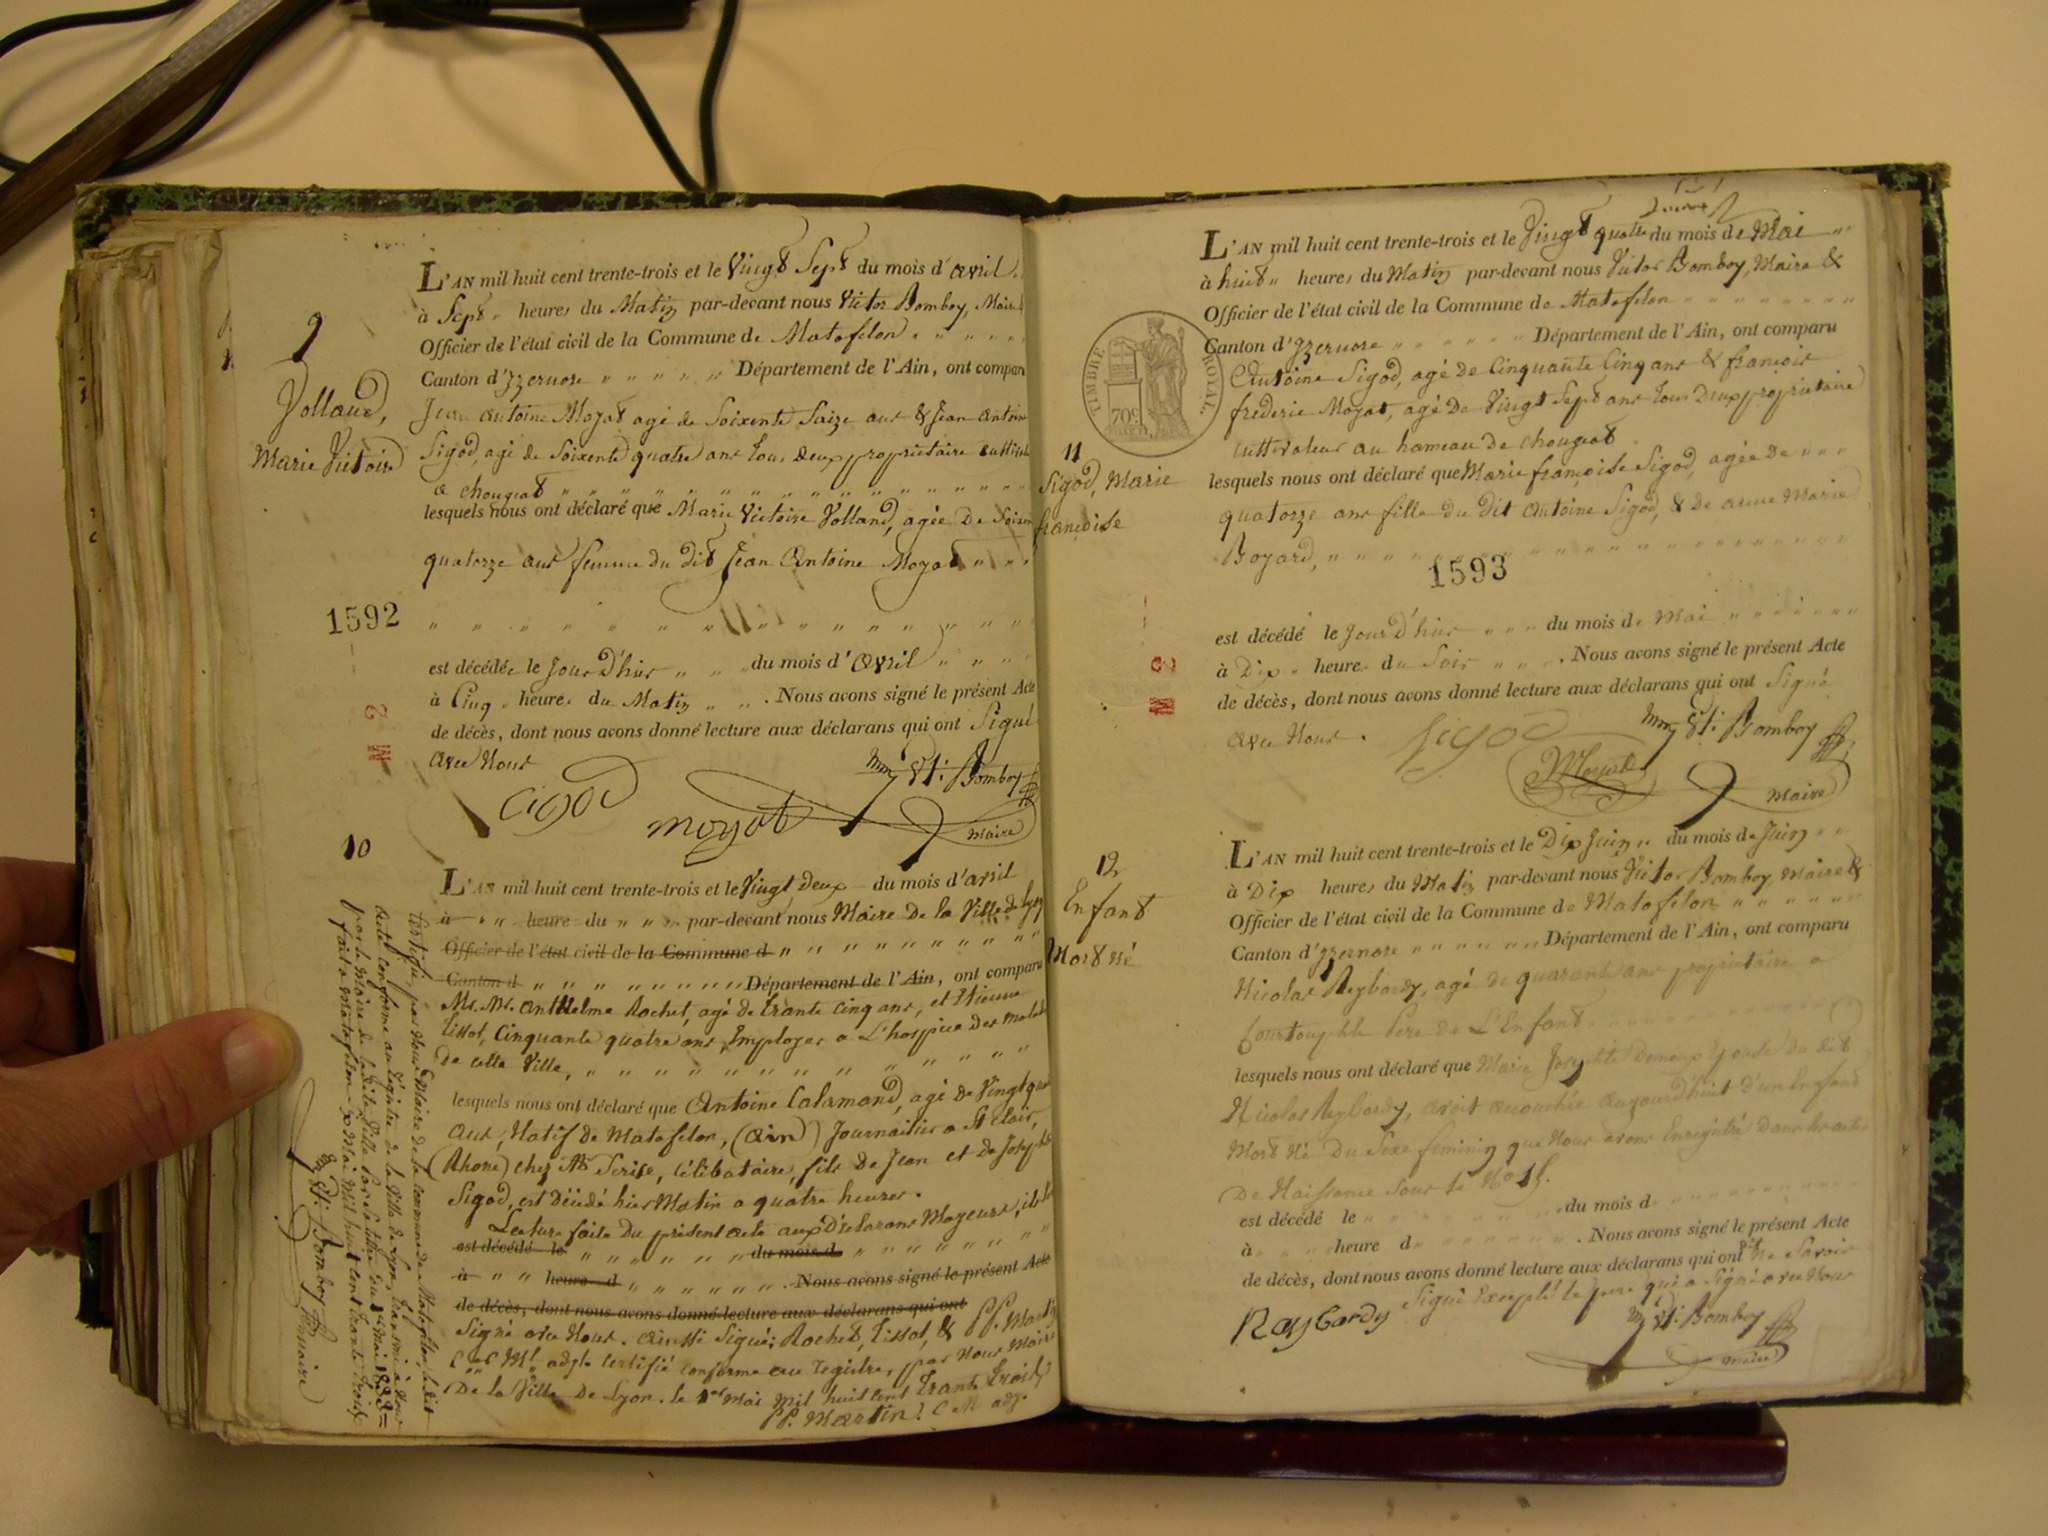 9
Volland,
Marie Victoire
L'AN mil huit cent trente-trois et le Vingt Sept du mois d'avril
à Sept heures du Matin par-devant nous Victor Bomboy, Maire
Officier de l'état civil de la Commune de Matafelon
Canton d'Yzernore Département de l'Ain, ont comparu
Jean antoine Moyat agé de Soixente Saize ans & Jean Antoine
Sigod, agé de Soixente quatre ans tous deux propriétaire
a chougeat
lesquels nous ont déclaré que Marie Victoire Volland, agée De
quatorze ans femme du dit Jean Antoine Moyat
1592
est décédée le Jour D'hier du mois d'avril
à Cinq heures du Matin. Nous avons signé le présent Acte
de décès, dont nous avons donné lecture aux déclarans qui ont Signé
avec Nous
Cigod
moyat
Bomboy
maire
10
L'AN mil huit cent trente-trois et le Vingt deux du mois d'avril
à heure du par-devant nous Maire De la Ville de Lyon
Officier de l'état civil de la Commune d
Canton d Département de l'Ain, ont comparu
Mr. Mr. anthelme Rochet, agé de trante cinq ans, et Etienne
tissot, Cinquante quatre ans, Employes a L'hospice Des Malade
De cette Ville,
lesquels nous ont déclaré que Antoine Calamand, agé De Vingt
ans, Natif De Matafelon, (ain) Journailier a St clair,
(Rhone) chez Serise, célibataire, fils De Jean et de
Sigod, est Décédé hier Matin a quatre heures.
Lecture faite Du présent acte aux Déclarans Mayeurs,
est décédé le du mois d
à heure d . Nous avons signé le présent Acte
de décès, dont nous avons donné lecture aux déclarans qui ont
Signé avec Nous. ainssi Signé; Rochet, tissot, & PP. Martin
adjt Certifié conforme au registre, par Nous Maire
De la Ville De Lyon. le 1er Mai Mil huit cent trante trois
PP. Martin! C M adj.
par Nous Maire de la commune de Matafelon,
acte conforme de la Ville de Lyon, transmis a Nous
par le Maire de la dite Ville 1833
fait a Matafelon Mai Mil huit cent trante trois
Bomboy
maire
L'AN mil huit cent trente-trois et le Vingt quatre du mois de Mai
à huit heures du Matin par-devant nous Victor Bomboy, Maire &
Officier de l'état civil de la Commune de Matafelon
Canton d'Yzernore Département de l'Ain, ont comparu
Antoine Sigod, agé de Cinquante Cinq ans & francois
frederic Moyat, agé De Vingt Sept ans tous Deux propriétaire
cultivateur au hameau de chougeat
TIMBRE ROYAL
70c
11
Sigod, Marie
françoise
lesquels nous ont déclaré que Marie françoise Sigod, agée De
quatorze ans fille du Dit Antoine Sigod, & de anne Marie
Boyard,
1593
est décédé le Jour D'hier du mois de Mai
à Dix heures du Soir. Nous avons signé le présent Acte
de décès, dont nous avons donné lecture aux déclarans qui ont Signé
avec Nous.
Sigod
Moyat
Bomboy
maire
12
Enfant
Mort Né
L'AN mil huit cent trente-trois et le Dix Juin du mois de Juin
à Dix heures du Matin par-devant nous Victor Bomboy, Maire &
Officier de l'état civil de la Commune de Matafelon
Canton d'Yzernore Département de l'Ain, ont comparu
Nicolas Reybardy, agé de quarante ans propriétaire a
père De L'Enfant
lesquels nous ont déclaré que Marie Josephte Epouse Du dit
Nicolas Reybardy, avoit accouchée aujourd'huit D'un Enfand
Mort Né Du Sexe feminin que Nous avons Enregistré Dans les actes
De Naissance Sous le No
est décédé le du mois d
à heure d . Nous avons signé le présent Acte
de décès, dont nous avons donné lecture aux déclarans qui ont dit Ne Savoir
Signé Excepté le pere qui a Signé avec Nous
Raybardy
Bomboy
maire